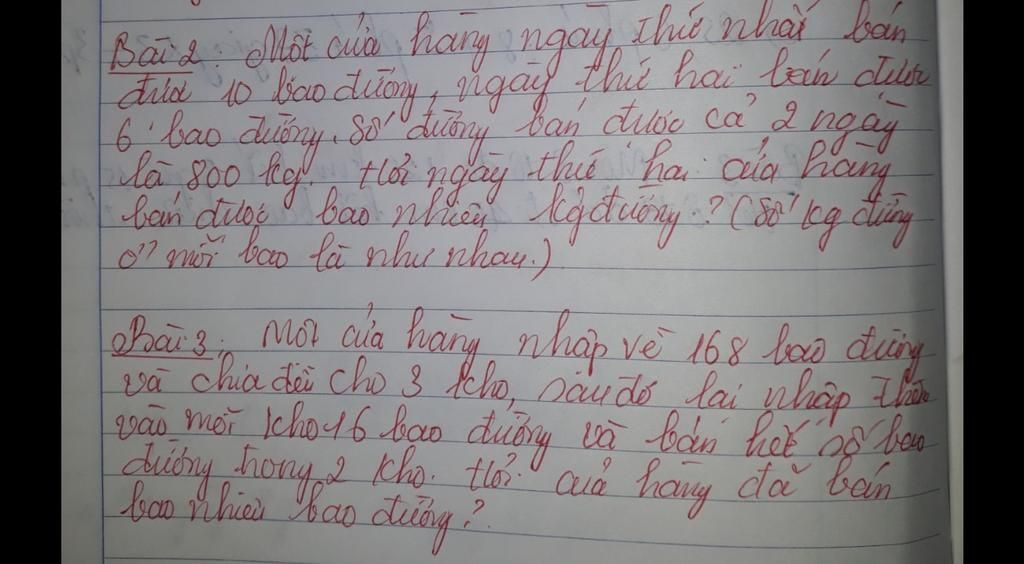 Bài 2. Một cửa hàng ngày thứ nhất bán
được 10 bao đường, ngày thứ hai bán được
6 bao đường. Số đường bán được cả 2 ngày
là 800 kg. Hỏi ngày thứ hai cửa hàng
bán được bao nhiêu kg đường? (Số kg đường
ở mỗi bao là như nhau.)
Bài 3. Một cửa hàng nhập về 168 bao đường
và chia đều cho 3 kho, sau đó lại nhập thêm
vào mỗi kho 16 bao đường và bán hết số bao
đường trong 2 kho. Hỏi cửa hàng đã bán
bao nhiêu bao đường?